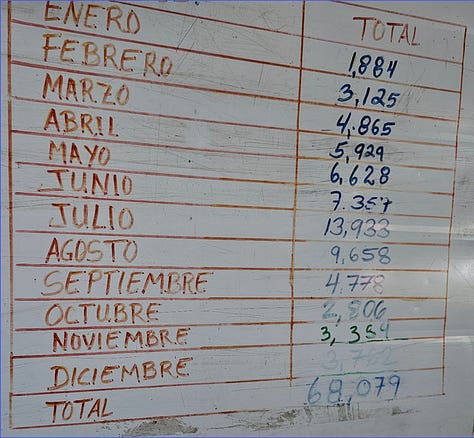 TOTAL
ENERO 1,884
FEBRERO 3,125
MARZO 4,865
ABRIL 5,929
MAYO 6,628
JUNIO 7.357
JULIO 13,933
AGOSTO 9,658
SEPTIEMBRE 4.778
OCTUBRE 2,806
NOVIEMBRE 3,354
DICIEMBRE 3,762
TOTAL 68,079